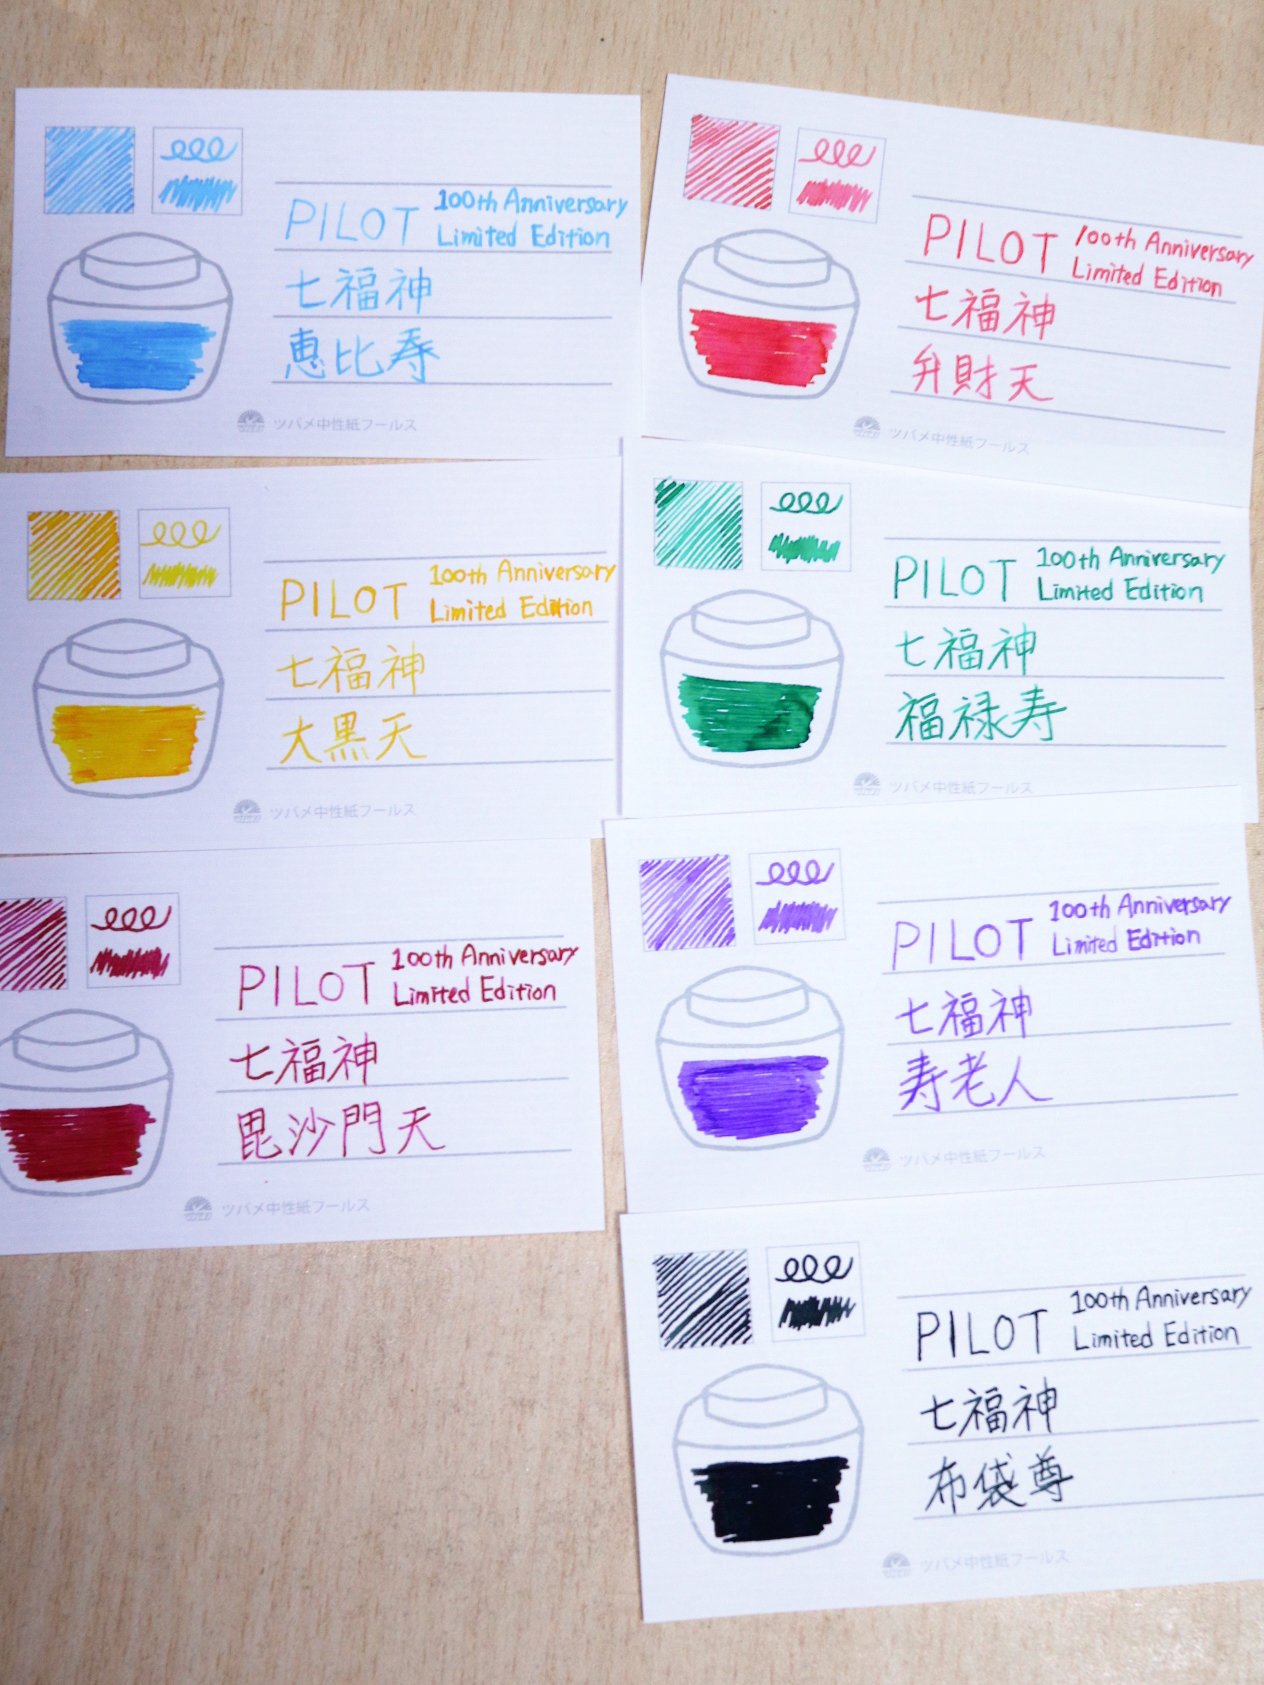 PILOT 100th Anniversary
Limited Edition
七福神
恵比寿
ツバメ中性紙フールス
PILOT 100th Anniversary
Limited Edition
七福神
弁財天
ツバメ中性紙フールス
PILOT 100th Anniversary
Limited Edition
七福神
大黒天
ツバメ中性紙フールス
PILOT 100th Anniversary
Limited Edition
七福神
福禄寿
ツバメ中性紙フールス
PILOT 100th Anniversary
Limited Edition
七福神
毘沙門天
ツバメ中性紙フールス
PILOT 100th Anniversary
Limited Edition
七福神
寿老人
ツバメ中性紙フールス
PILOT 100th Anniversary
Limited Edition
七福神
布袋尊
ツバメ中性紙フールス